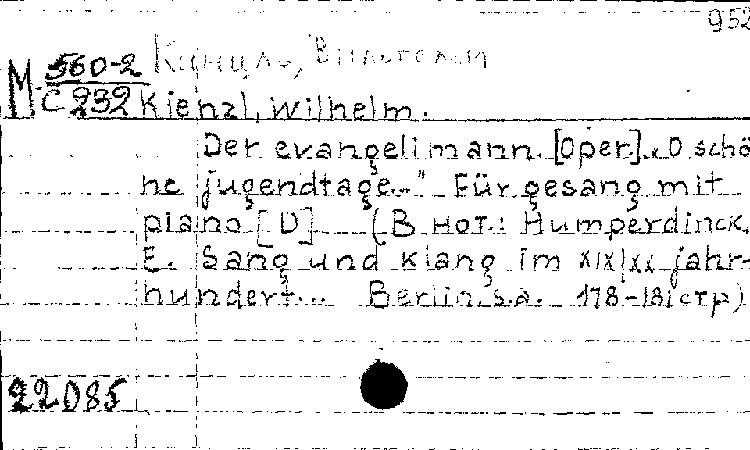 952
М 560-2 Кинцль, Вильгельм
С 232 Kienzl, Wilhelm.
Der evangelimann. [Oper]. „O schö
ne jugendtage..." Für gesang mit
piano [U] (В нот.: Humperdinck,
E. Sang und Klang im XIX/XX jahr-
hundert... Berlin s.a. 178-181 стр)
22085